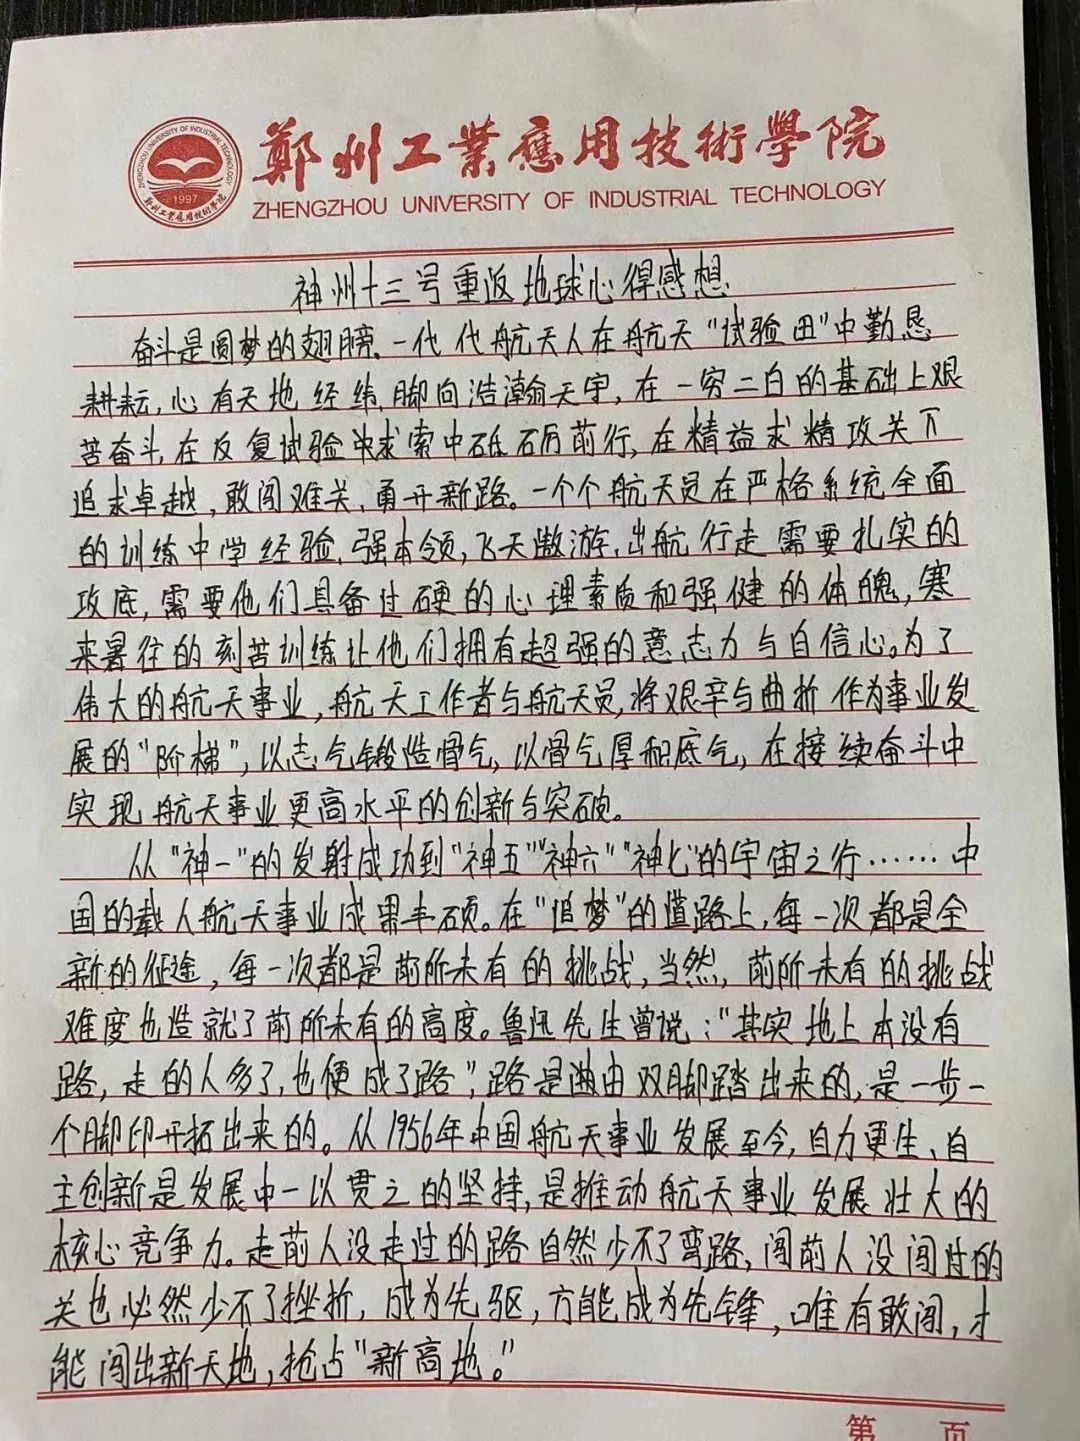 鄭州工業應用技術學院
ZHENGZHOU UNIVERSITY OF INDUSTRIAL TECHNOLOGY
ZHENGZHOU UNIVERSITY OF INDUSTRIAL TECHNOLOGY
1997
鄭州工業應用技術學院
神州十三号重返地球心得感想
奋斗是圆梦的翅膀。一代代航天人在航天“试验田”中勤恳
耕耘,心有天地经纬,脚向浩瀚天宇,在一穷二白的基础上艰
苦奋斗,在反复试验中求索中砥砺前行,在精益求精攻关下
追求卓越,敢闯难关、勇开新路。一个个航天员在严格系统全面
的训练中学经验、强本领,飞天遨游、出航行走需要扎实的
攻底,需要他们具备过硬的心理素质和强健的体魄,寒
来暑往的刻苦训练让他们拥有超强的意志力与自信心。为了
伟大的航天事业,航天工作者与航天员,将艰辛与曲折作为事业发
展的“阶梯”,以志气锻造骨气,以骨气厚积底气,在接续奋斗中
实现航天事业更高水平的创新与突破。
从“神一”的发射成功到“神五”“神六”“神七”的宇宙之行……中
国的载人航天事业成果丰硕。在“追梦”的道路上,每一次都是全
新的征途,每一次都是前所未有的挑战,当然,前所未有的挑战
难度也造就了前所未有的高度。鲁迅先生曾说:“其实地上本没有
路,走的人多了,也便成了路”,路是由双脚踏出来的,是一步一
个脚印开拓出来的。从1956年中国航天事业发展至今,自力更生、自
主创新是发展中一以贯之的坚持,是推动航天事业发展壮大的
核心竞争力。走前人没走过的路自然少不了弯路,闯前人没闯过的
关也必然少不了挫折,成为先驱,方能成为先锋,唯有敢闯,才
能闯出新天地,抢占“新高地。”
第 页